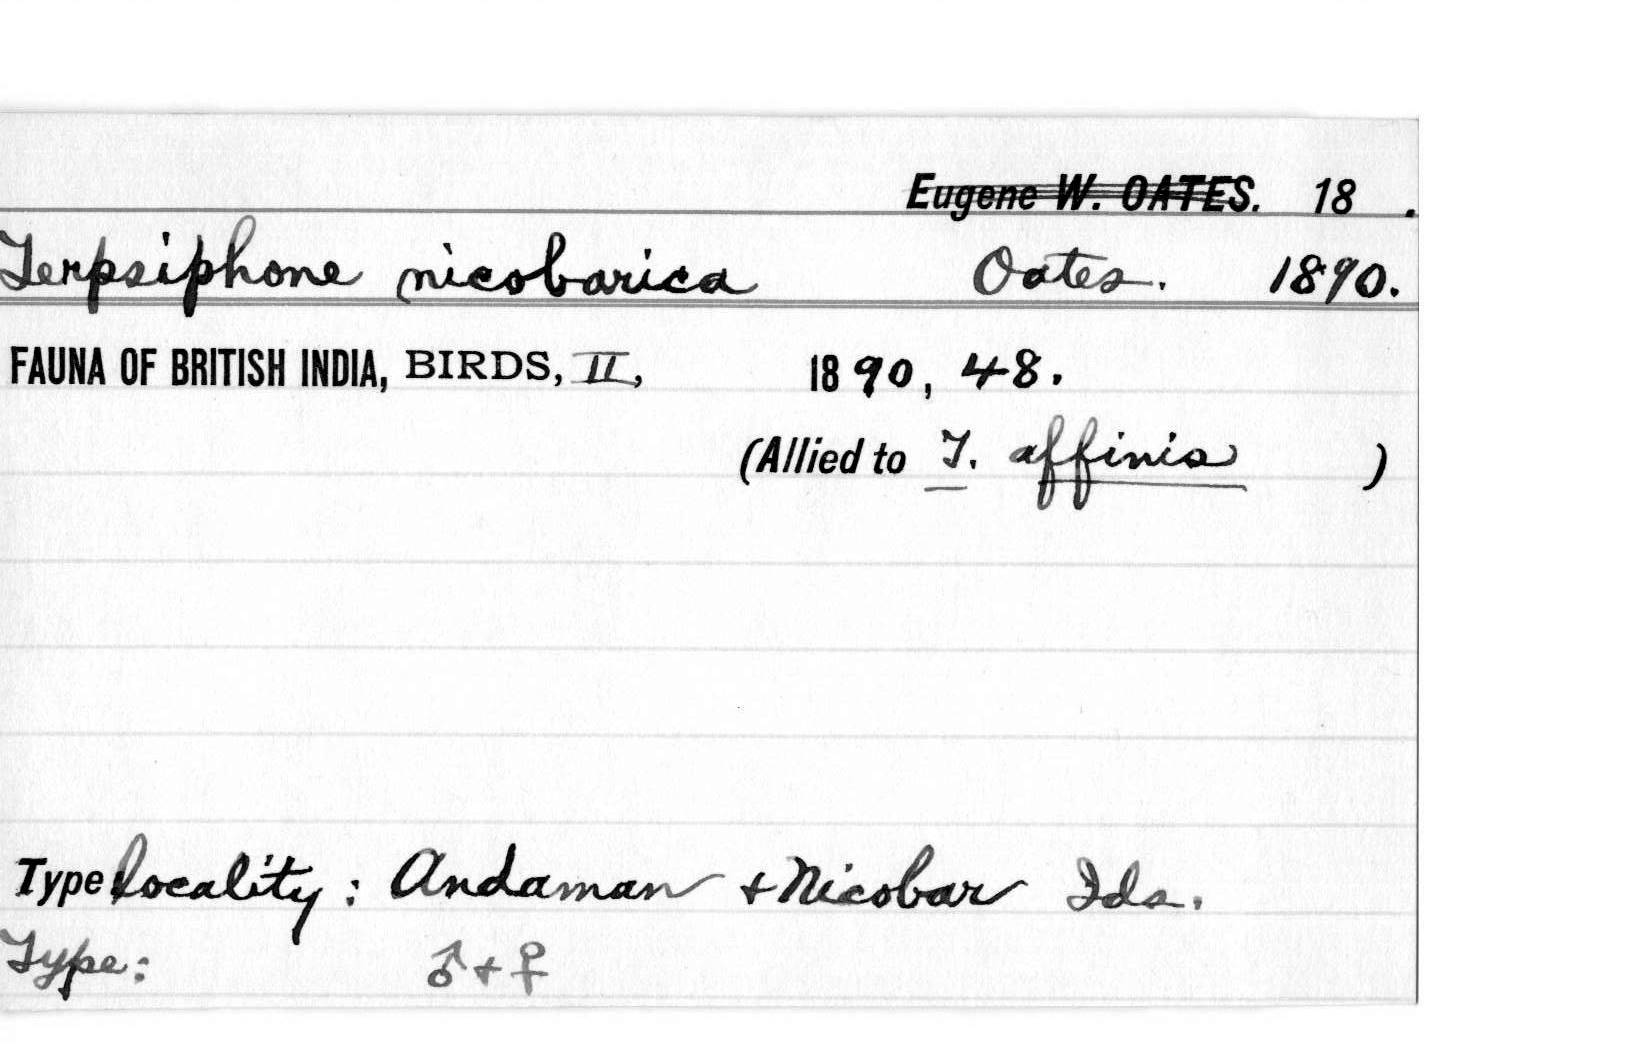 Eugene W. OATES. 18 .
Terpsiphone nicobarica Oates. 1890.
FAUNA OF BRITISH INDIA, BIRDS, II, 1890, 48.
(Allied to T. affinis )
Type locality : Andaman + Nicobar Ids.
Type: ♂ + ♀